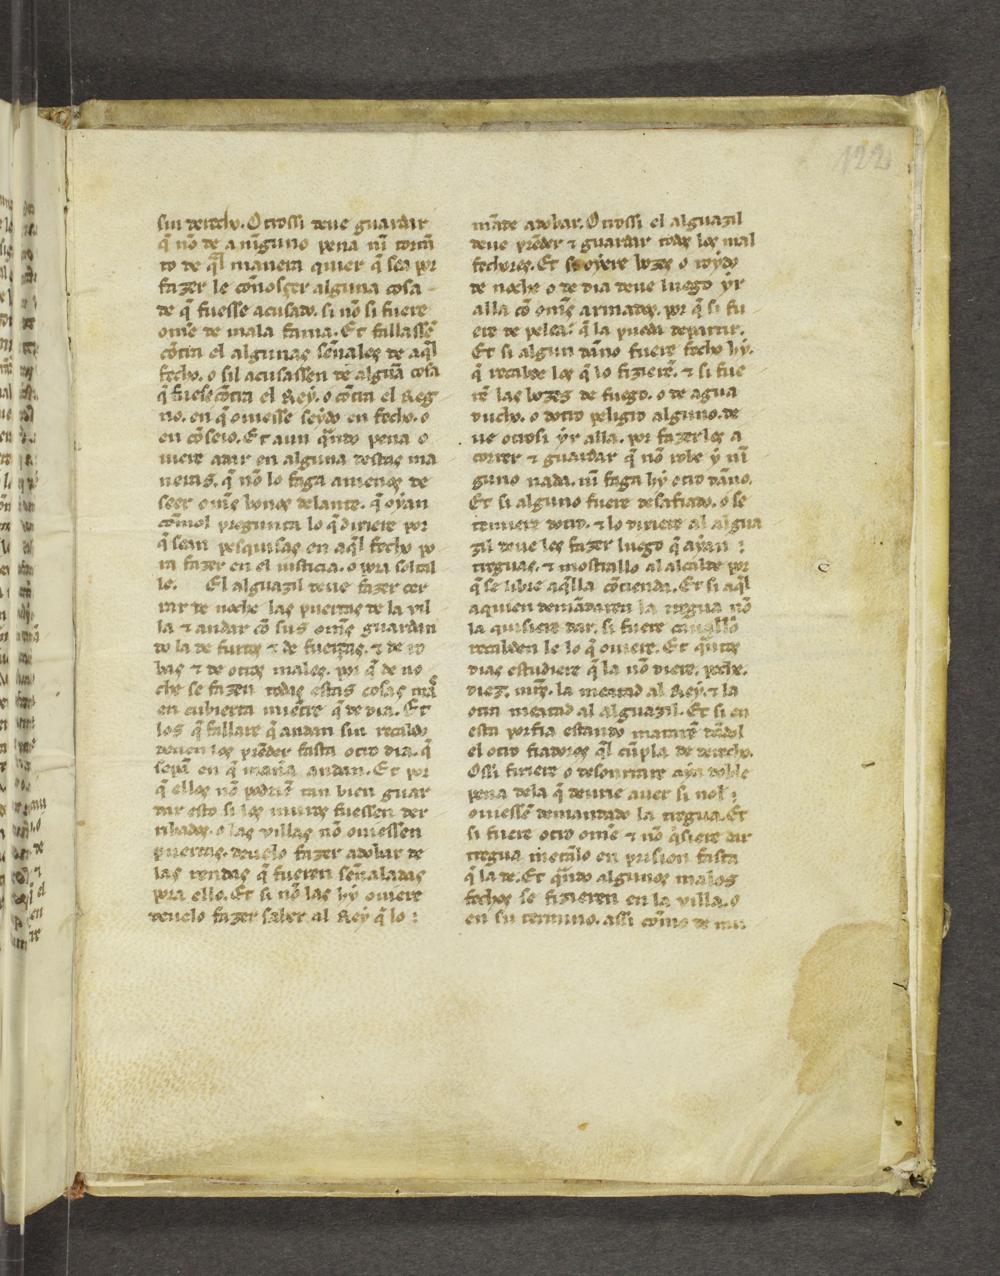 122
sin derecho. Otrossi deue guardar
q̃ nõ de a ninguno pena nĩ tormẽ
to de q̃l manera quier q̃ sea por
fazer le cõnosçer alguna cosa
de q̃ fuesse acusado. si nõ si fuere
om̃e de mala fama. Et fallassẽ
cõtra el algunas señales de aq̃l
fecho. o sil acusassen de algũa cosa
q̃ fuese cõtra el Rey. o cõtra el Reg
no. en q̃ ouiesse seydo en fecho. o
en cõseio. Et aun q̃ndo pena o
uiere adar en alguna destas ma
neras. q̃ nõ lo faga amenos de
seer om̃s bonos delante. q̃ oyan
cõmol pregunta lo q̃ dixiere por
q̃ sean pesquisas en aq̃l fecho po
ra fazer en el iusticia. o pora soltal
le. El alguazil deue fazer cer
rar de noche las puertas de la vil
la τ andar cõ sus om̃s guardan
do la de furtos τ de fuerças. τ de ro
bos τ de otros males. por q̃ de no
che se fazen todas estas cosas mas
en cubierta miẽtre q̃ de dia. Et
los q̃ fallare q̃ andan sin recabdo
deuen los prẽder fasta otro dia. q̃
sepã en q̃ mañra andan. Et por
q̃ ellos nõ podriẽ tan bien guar
dar esto si los muros fuessen der
ribados. o las villas nõ ouiessen
puertas. deuelo fazer adobar de
las rendas q̃ fueren señaladas
pora ello. Et si nõ las hy ouiere
deuelo fazer saber al Rey q̃ lo :
mãde adobar. Otrossi el alguazil
deue prẽder τ guardar todos los mal
fechores. Et si oyere bozes o roydo
de noche o de dia deue luego yr
alla cõ om̃s armados. por q̃ si fu
ere de pelea: q̃ la pueda departir.
Et si algun daño fuere fecho hy.
q̃ recabde los q̃ lo fizierẽ. τ si fue
rẽ las bozes de fuego. o de agua
ducho. o dotro peligro alguno. de
ue otrosi yr alla. por fazerles a
correr τ guardar q̃ nõ robe y nĩ
guno nada. nĩ faga hy otro daño.
Et si alguno fuere desafiado. o se
temiere dotro. τ lo dixiere al algua
zil deue les fazer luego q̃ ayan :
treguas. τ mostrallo al alcalde por
q̃ se libre aq̃lla cõtienda. Et si aq̃l
aquien demãdaren la tregua nõ
la quisiere dar. si fuere cauallo
recabden le lo q̃ ouiere. Et q̃ntos
dias estudiere q̃ la nõ diere. peche.
diez. mrs̃. la meatad al Rey. τ la
otra meatad al alguazil. Et si en
esta porfia estando matarẽ dãdol
el otro fiadores q̃l cũpla de derecho.
Ossi firiere o desonrrare aya doble
pena dela q̃ deurie auer si nol :
ouiessẽ demandado la tregua. Et
si fuere otro om̃e τ nõ q̃siere dar
tregua metãlo en prision fasta
q̃ la de. Et q̃ndo algunos malos
fechos se fizieren en la villa. o
en su termino. assi cõmo de mu